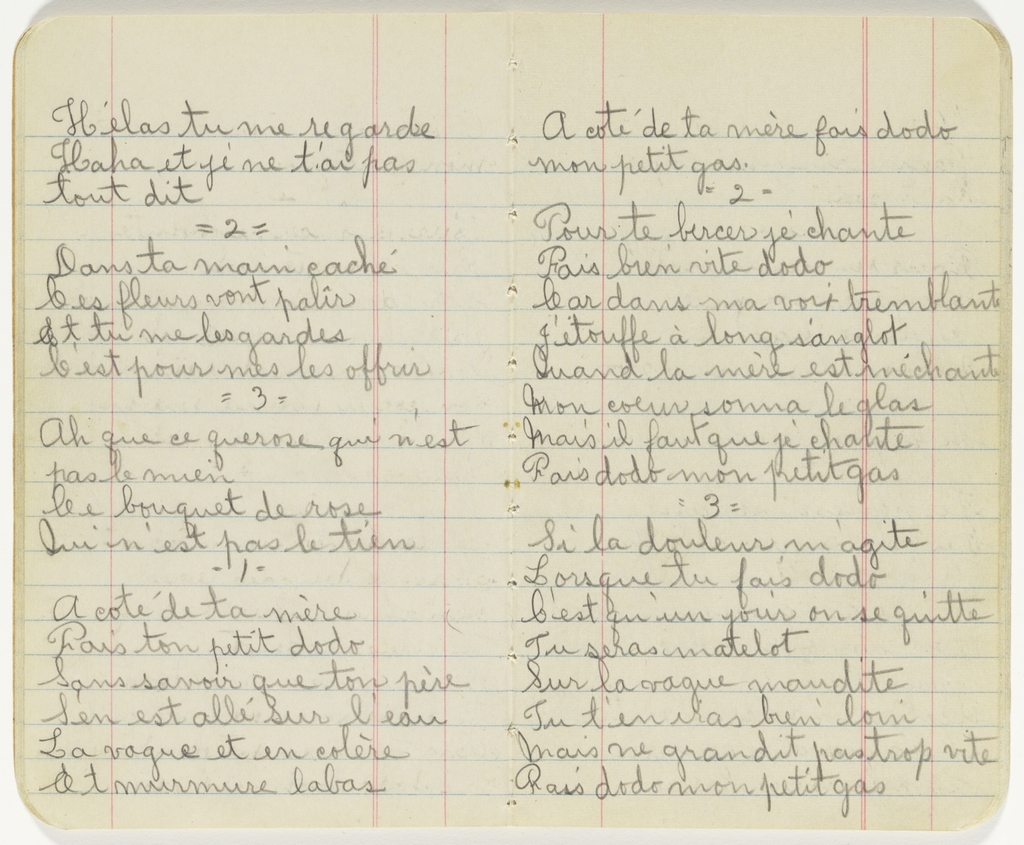 Hélas tu me regarde
Haha et je ne t'ai pas
tout dit
= 2 =
Dans ta main caché
Ces fleurs vont palir
Et tu me les gardes
C'est pour mes les offrir
= 3 =
Ah que ce querose qui n'est
pas le mien
Ce bouquet de rose
Qui n'est pas le tien
- 1 -
A coté de ta mère
Fais ton petit dodo
Sans savoir que ton père
S'en est allé sur l'eau
La vague et en colère
Et murmure labas
A coté de ta mère fais dodo
mon petit gas.
= 2 =
Pour te bercer je chante
Fais bien vite dodo
Car dans ma voix tremblante
J'étouffe à long sanglot
Quand la mère est méchante
Mon coeur sonna le glas
Mais il faut que je chante
Fais dodo mon petit gas
= 3 =
Si la douleur m'agite
Lorsque tu fais dodo
C'est qu'un jour on se quitte
Tu seras matelot
Sur la vague maudite
Tu t'en iras bien loin
Mais ne grandit pas trop vite
Fais dodo mon petit gas